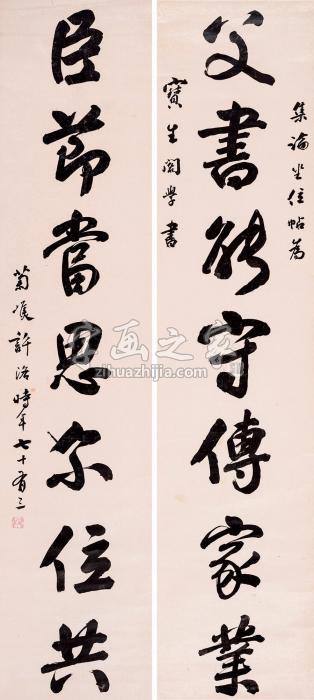 集論坐位帖為
父書能守傳家業
寶生閣學書
臣節當思尔位共
許洛時年七十有三
字画之家
zihuazhijia.com